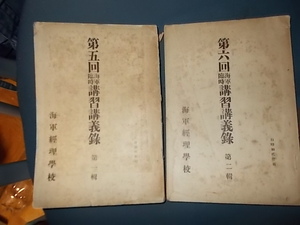 第五回海軍臨時講習講義錄
第一輯
海軍經理學校
第六回海軍臨時講習講義錄
第二輯
海軍經理學校